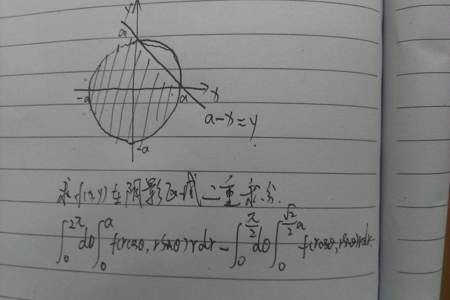 y
a
-a
a
x
a-x=y
-a
求f(x,y)在阴影区域二重积分.
∫₀^{2π}dθ∫₀^{a}f(rcosθ,rsinθ)rdr-∫₀^{π/2}dθ∫₀^{√2/2 a}f(rcosθ,rsinθ)rdr.